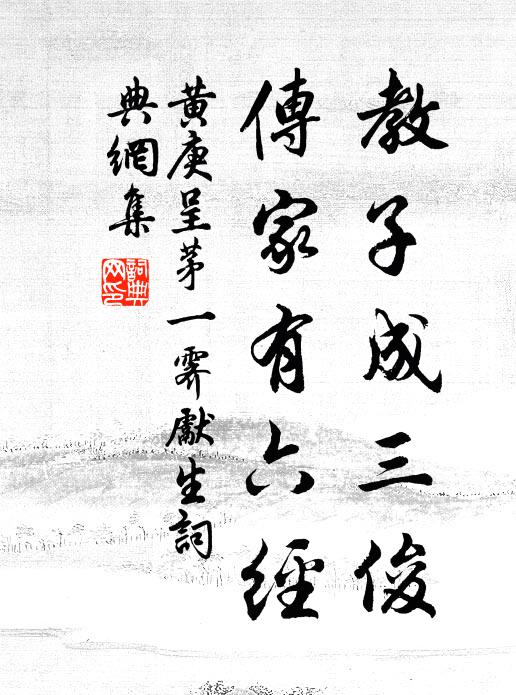 教子成三俊
傳家有六經
黃庚呈茅一霽獻生詞
典網集
詞典網印